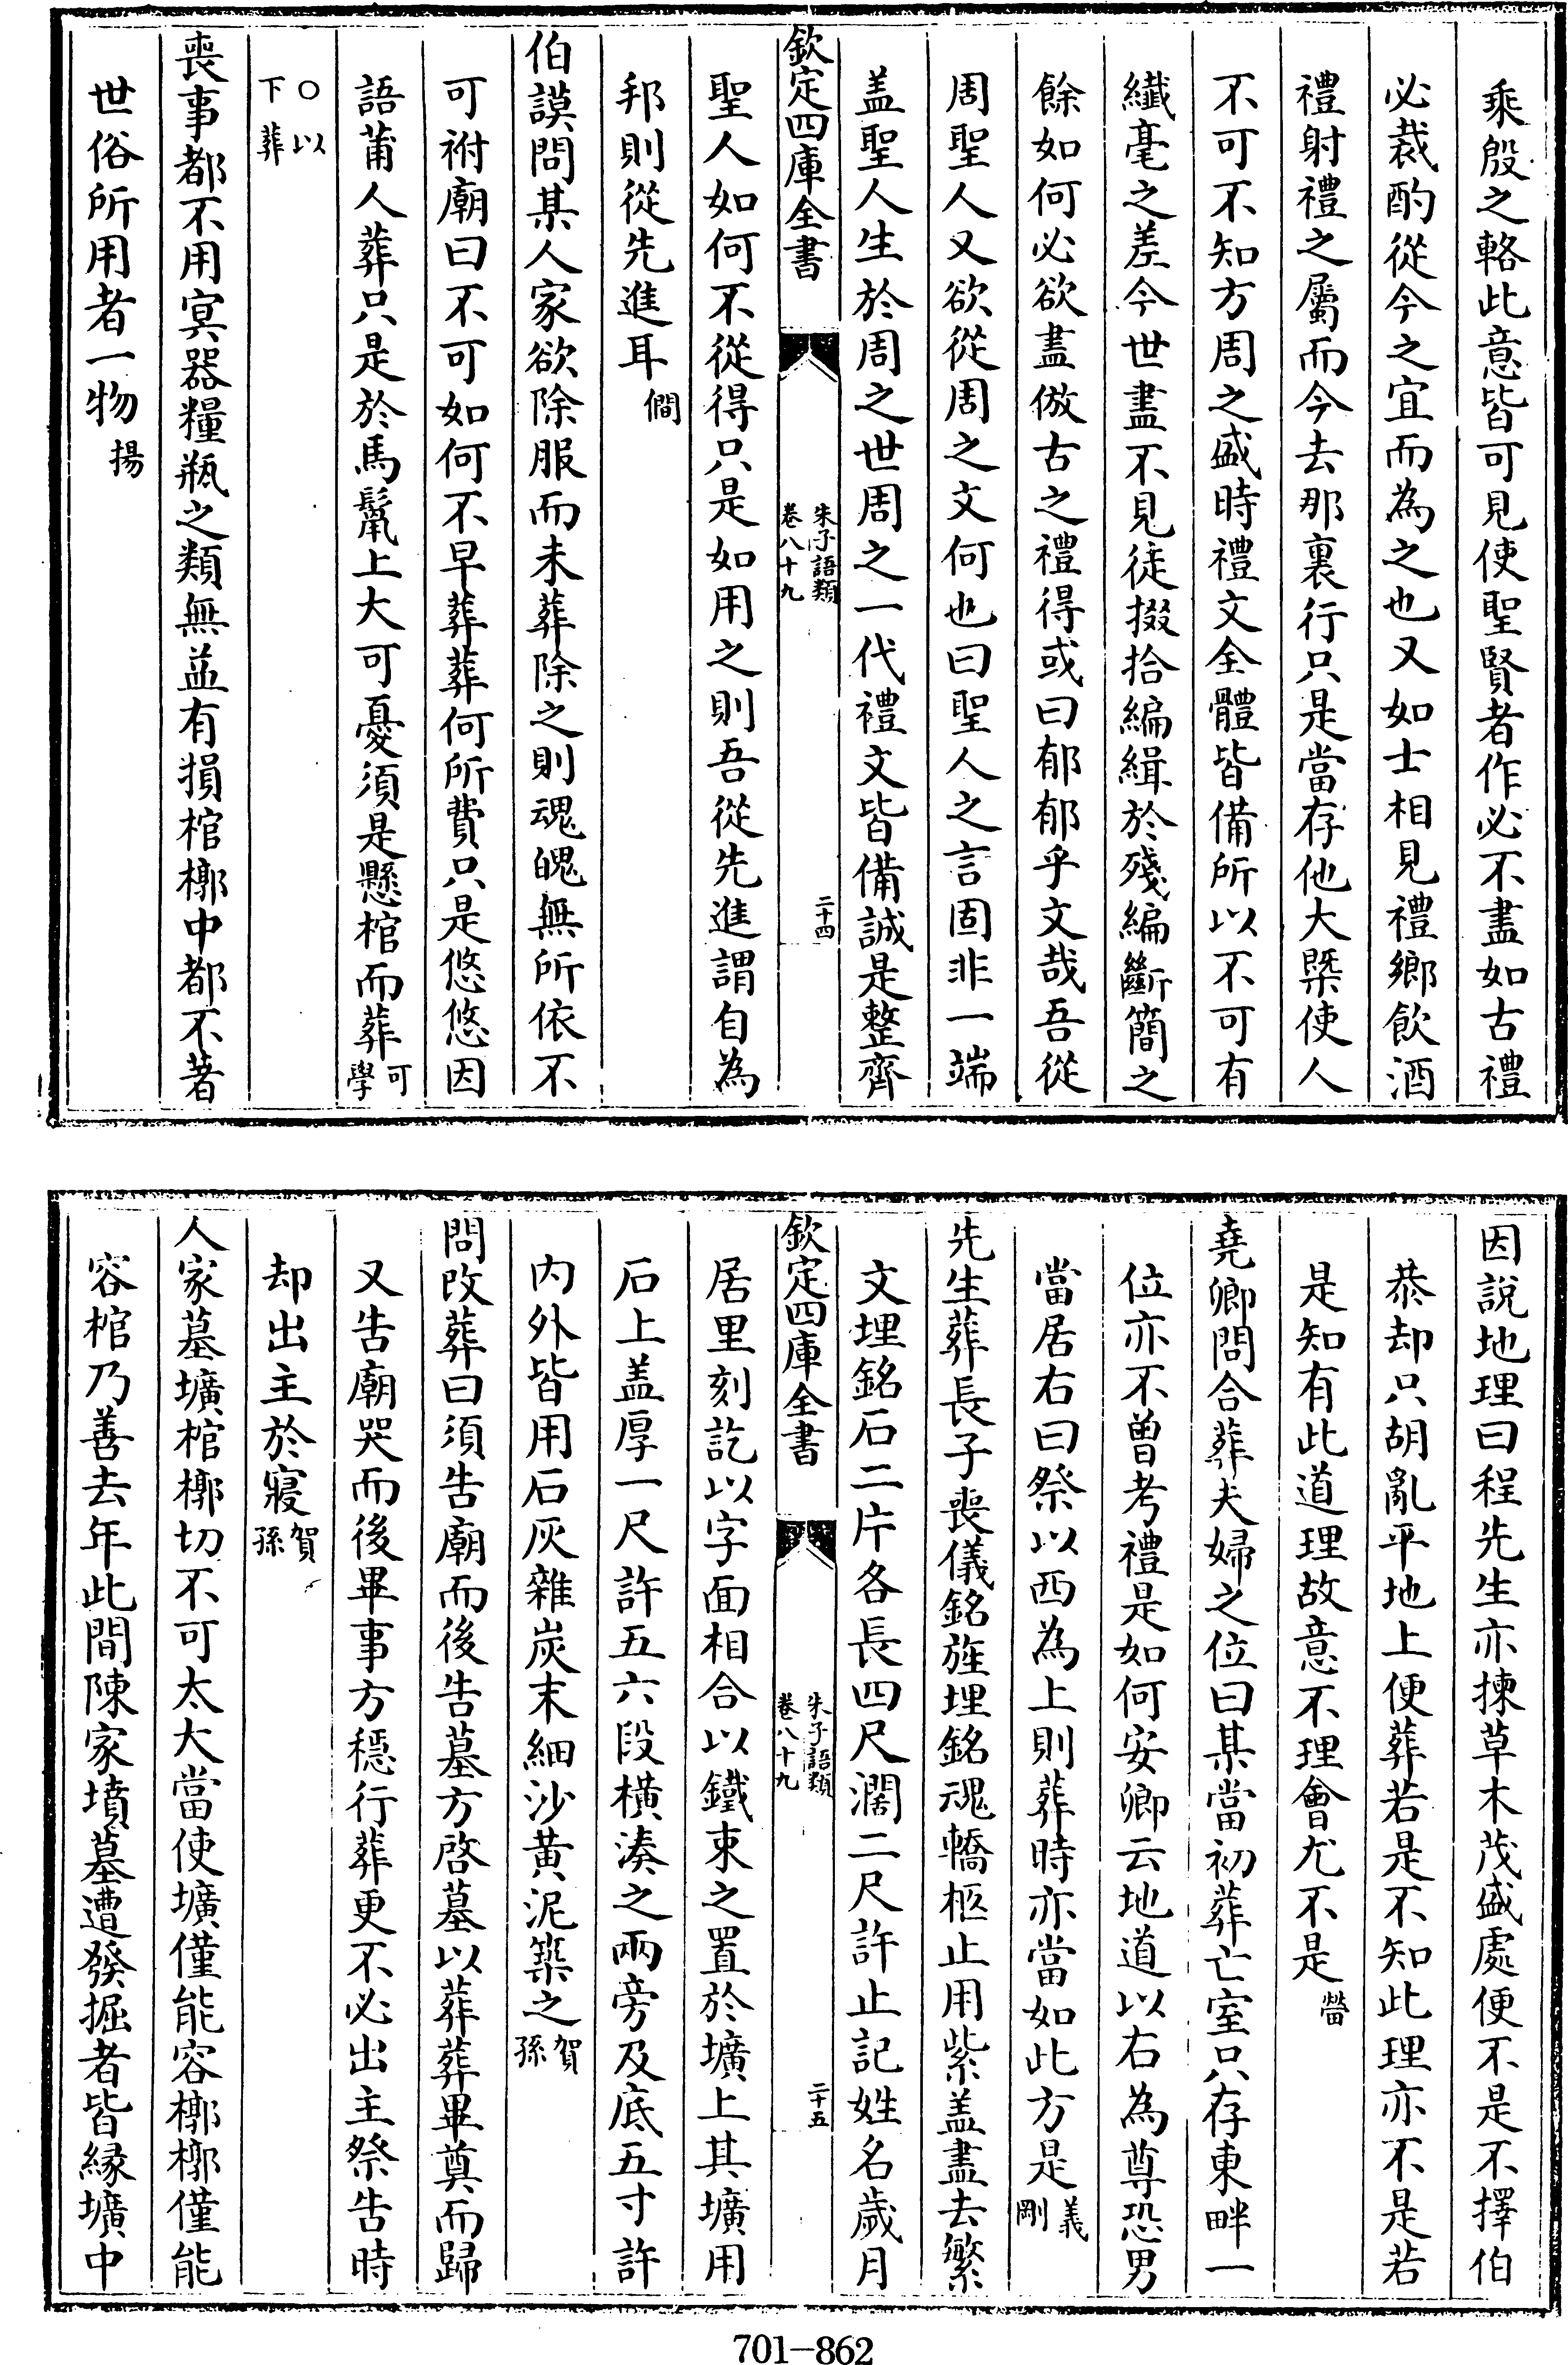 乘殷之輅此意皆可見使聖賢者作必不盡如古禮
必裁酌從今之宜而為之也又如士相見禮鄉飲酒
禮射禮之屬而今去那裏行只是當存他大槩使人
不可不知方周之盛時禮文全體皆備所以不可有
纎毫之差今世盡不見徒掇拾編緝於殘編斷簡之
餘如何必欲盡倣古之禮得或曰郁郁乎文哉吾從
周聖人又欲從周之文何也曰聖人之言固非一端
盖聖人生於周之世周之一代禮文皆備誠是整齊
欽定四庫全書 朱子語類 卷八十九 二十四
聖人如何不從得只是如用之則吾從先進謂自為
邦則從先進耳 僩
伯謨問某人家欲除服而未葬除之則魂魄無所依不
可祔廟曰不可如何不早葬葬何所費只是悠悠因
語莆人葬只是於馬鬛上大可憂須是懸棺而葬 可學
○以下葬
喪事都不用冥器糧瓶之類無益有損棺槨中都不著
世俗所用者一物 揚
因說地理曰程先生亦揀草木茂盛處便不是不擇伯
恭却只胡亂平地上便葬若是不知此理亦不是若
是知有此道理故意不理會尤不是 㽦
堯卿問合葬夫婦之位曰某當初葬亡室只存東畔一
位亦不曾考禮是如何安卿云地道以右為尊恐男
當居右曰祭以西為上則葬時亦當如此方是 義剛
先生葬長子喪儀銘旌埋銘魂轎柩止用紫盖盡去繁
文埋銘石二片各長四尺濶二尺許止記姓名歲月
欽定四庫全書 朱子語類 卷八十九 二十五
居里刻訖以字面相合以鐵束之置於壙上其壙用
石上盖厚一尺許五六段横湊之兩旁及底五寸許
内外皆用石灰雜炭末細沙黄泥築之 賀孫
問改葬曰須告廟而後告墓方啓墓以葬葬畢奠而歸
又告廟哭而後畢事方穩行葬更不必出主祭告時
却出主於寢 賀孫
人家墓壙棺槨切不可太大當使壙僅能容槨槨僅能
容棺乃善去年此間陳家墳墓遭發掘者皆縁壙中
701-862